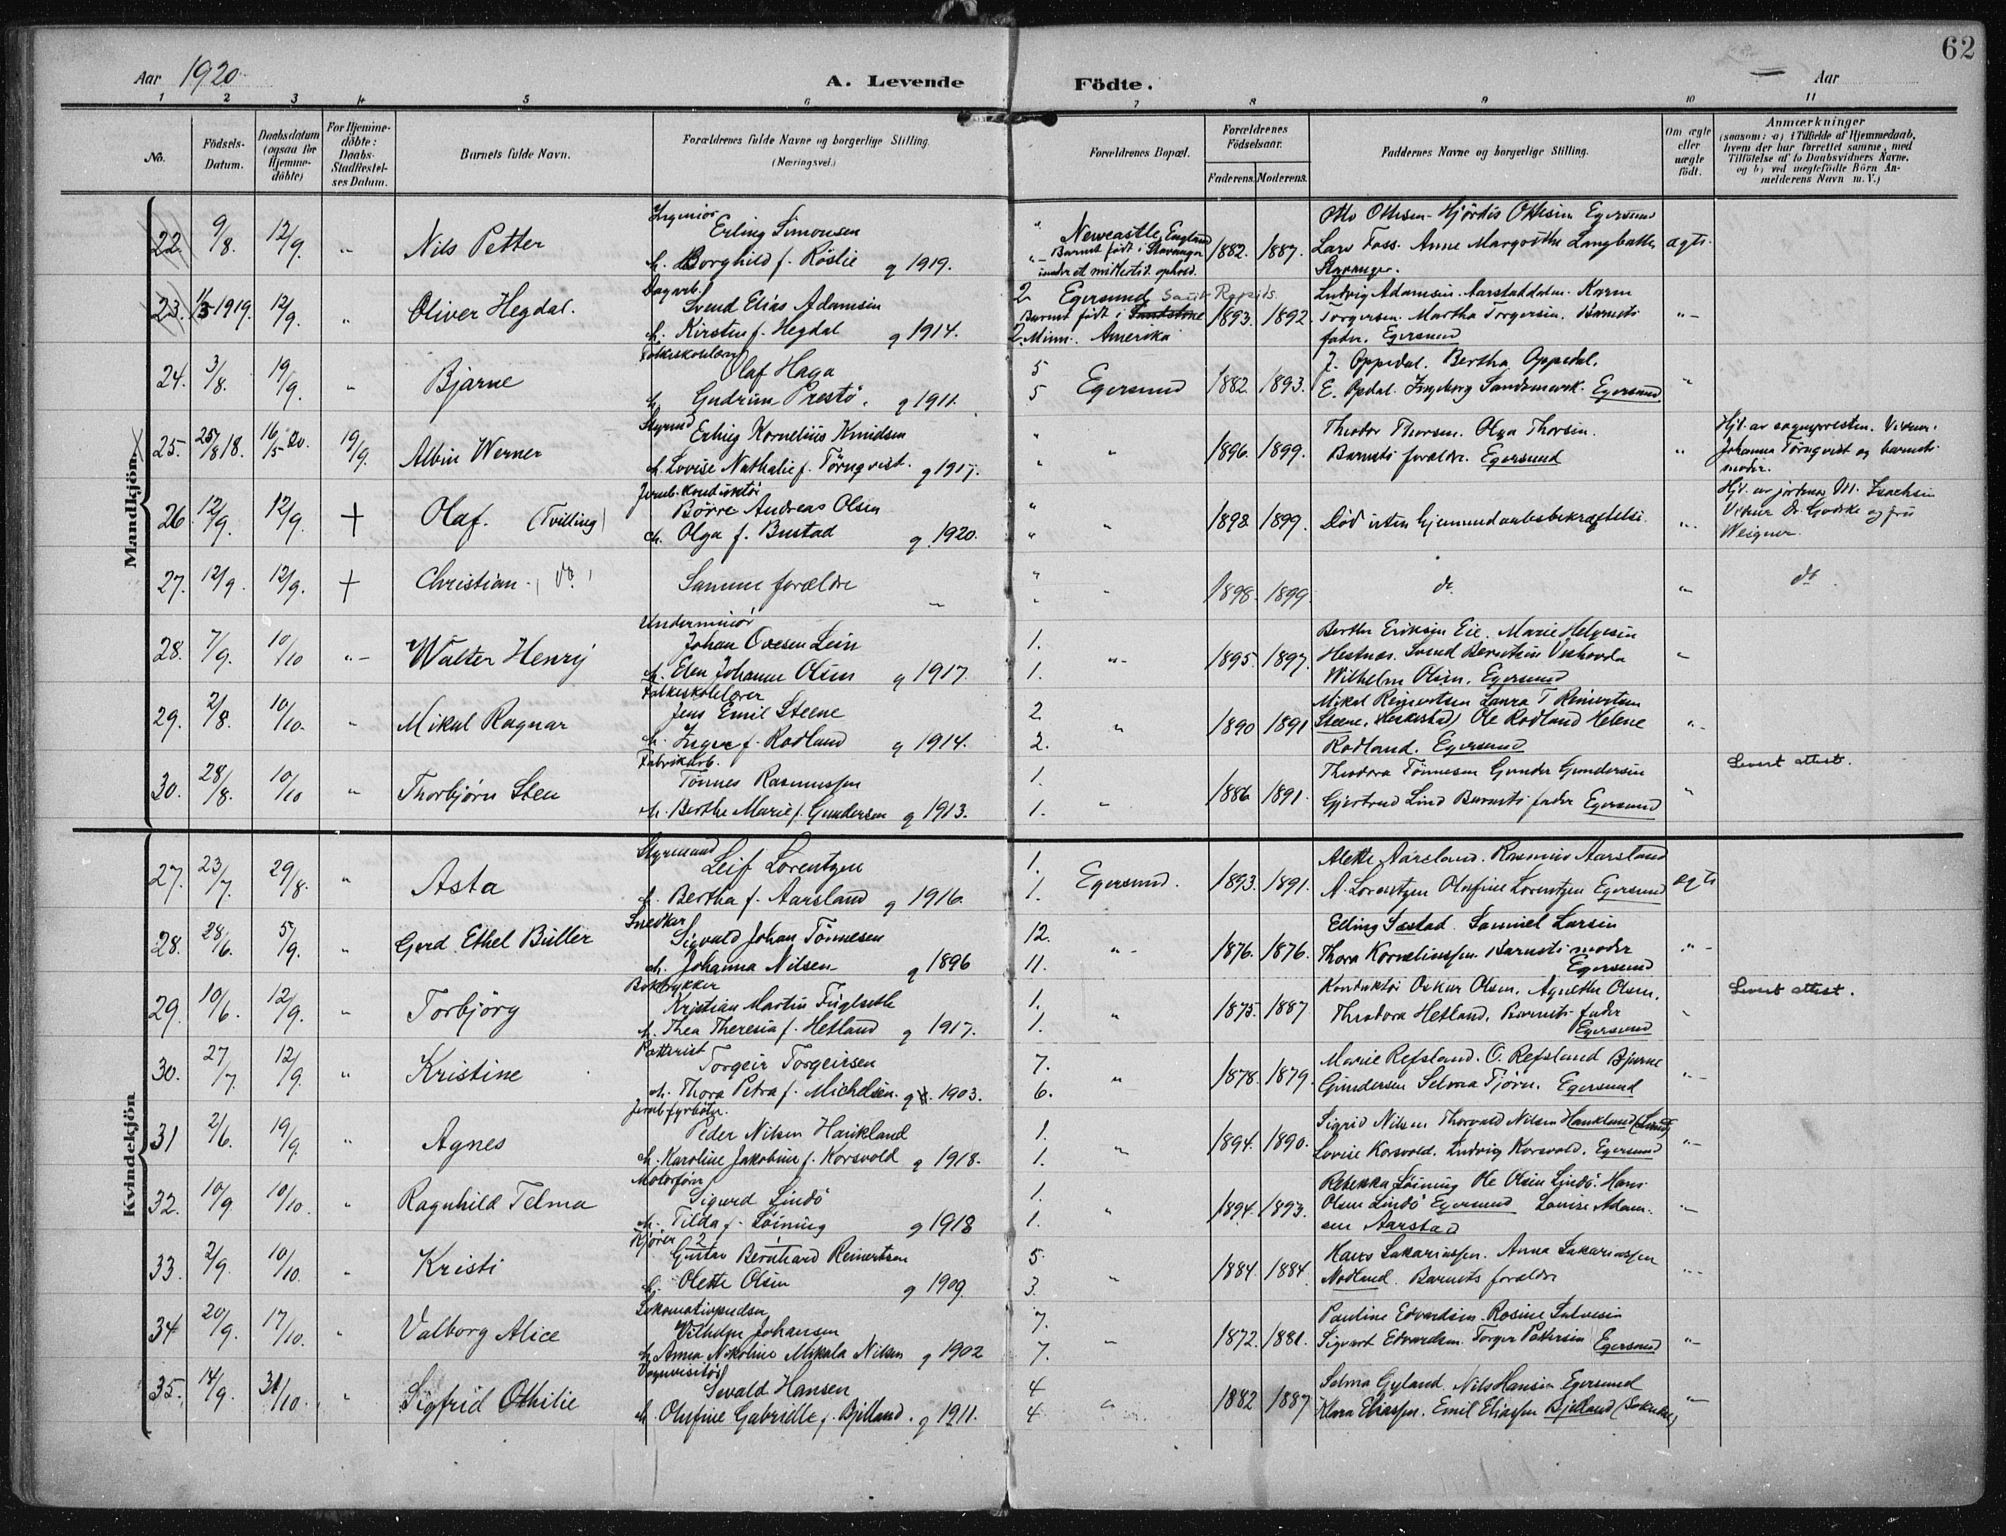 62
Aar 1920
A. Levende Födte.
Aar
1 2 3 4 5 6 7 8 9 10 11
No.
Födsels-Datum.
Daabsdatum (ogsaa for Hjemme-döbte)
For Hjemme-döbte: Daabs-Stadfæstel-ses Datum.
Barnets fulde Navn.
Forældrenes fulde Navne og borgerlige Stilling. (Næringsvei.)
Forældrenes Bopæl.
Forældrenes Födselsaar.
Faderens. Moderens.
Faddernes Navne og borgerlige Stilling.
Om ægte eller uægte født.
Anmærkninger
(saasom: a) i Tilfælde af Hjemmedaab, hvem der har forrettet samme, med Tilföielse af to Daabsvidners Navne, og b) ved uægtefödte Börn An-melderens Navn m. V.)
Mandkjön
22. 9/8. 12/9. " Nils Petter
Ingeniør Erling Simonsen
h. Borghild f. Röslie g 1919.
Newcastle, England
Barnet født i Stavanger under et midlertid. ophold.
1882. 1887.
Otto Ottesen Hjördis Ottesen Egersund
Lars Foss. Anne Margrethe
Stavanger. ægte.
23. 1/5 1919. 12/9. " Oliver Hegdal.
Dagarb. Svend Elias Adamsen
h. Kirsten f. Hegdal g 1914.
2 Egersund Sauk Rapids
Barnet født i
2. Minn. Amerika
1893. 1892.
Ludvig Adamsen. Aarstaddalen. Karen
Torgersen. Martha Torgersen. Barnets
fader. Egersund "
24. 3/8. 19/9. " Bjarne
Folkeskolelærer Olaf Haga
h. Gudrun Prestö. g 1911.
5 5 Egersund 1882. 1893.
J. Oppedal. Bertha Oppedal.
E. Opdal. Ingeborg Sandsmark. Egersund "
25. 25/8 18. 16/5 20. 19/9. Albin Werner
Styrmd Erling Kornelius Knudsen
h. Lovise Nathalie f. Törnqvist. g 1917.
" " 1896. 1899.
Theodor Thorsen. Olga Thorsen.
Barnets forældre. Egersund "
Hjd. av sognepresten. Vidner:
Johanna Törnqvist og barnets
moder.
26. 12/9. 12/9. + Olaf. (Tvilling)
Jernb. konduktör
Börre Andreas Olsen
h. Olga f. Bustad g. 1920.
" " 1898. 1899.
Död uten hjemmedaabsbekræftelse. "
Hjd. av jordmor M. Isachsen
Vidner Dr. og fru
27. 12/9. 12/9. + Christian. (do.)
Samme forældre "
" " 1898. 1899. do. " do.
28. 7/9. 10/10 " Walter Henry
Underminör
Johan Ovesen Lein
h. Elen Johanne Olsen g 1917.
1. 1. " 1895. 1897.
Berthe Eriksen Eie. Marie Helgesen
Hestnes. Svend Berntsen
Wilhelm Olsen. Egersund "
29. 2/8. 10/10. " Mikal Ragnar
Folkeskolelærer
Jens Emil Steene
h. Inga f. Rodland g 1914.
2. 2. " 1890 1891
Mikal Reinertsen Laura T Reinertsen
Steene, Heskestad) Ole Rodland Helene
Rodland. Egersund "
30. 28/8. 10/10 " Thorbjørn Sten
Fabrikarb. Tönnes Rasmussen
h. Berthe Marie f. Gundersen g 1913.
1. 1. " 1886 1891.
Theodora Tönnesen Gunder Gundersen
Gjertrud Lind Barnets fader Egersund "
Levert attest.
Kvindekjön
27. 23/7. 29/8. " Asta
Styrmand Leif Lorentzen
h. Bertha f. Aarsland g 1916.
1. 1. Egersund. 1893. 1891.
Alette Aarsland. Rasmus Aarsland
A. Lorentzen Olufine Lorentzen Egersund ægte
28. 28/6. 5/9. " Gerd Ethel Buller
Snedker Sigvald Johan Tönnesen
h. Johanna Nilsen g 1896
12. 11. " 1876. 1876.
Elling Sæstad Samuel Larsen
Thora Kornelinssen. Barnets moder
Egersund "
29. 10/6. 12/9. " Torbjörg
Boktrykker Kristian Martin Fuglseth
h. Thea Theresia f. Hetland g 1917.
1. 1. " 1875. 1887
Konduktör Oskar Olsen. Agnethe Olsen.
Theodora Hetland. Barnets fader
Egersund "
Levert attest.
30. 27/7. 12/9. " Kristine
Torgeir Torgeirsen
h. Thora Petra f. Michelsen. g 1903.
7. 6. " 1878. 1879.
Marie Refsland. O. Refsland Bjarne
Gundersen Selma Tjörn. Egersund "
31 2/6. 19/9. " Agnes
Jernb. fyrböter. Peder Nilsen Haukland
h. Karoline Jakobine f. Korsvold g 1918.
1. 1. " 1894. 1890.
Sigrid Nilsen Thorvald Nilsen Haukland (Lund)
Lovise Korsvold. Ludvig Korsvold. Egersund "
32. 10/9 10/10. " Ragnhild Telma
Motorfører Sigurd Lindö
h. Tilda f. Löining g 1918
1. 1. " 1894. 1893.
Rebekka Löining Ole Olsen Lindö. Hans
Olsen Lindö Egersund Lovise Adam-
sen Aarstad "
33. 2/9. 10/10. " Kristi
Kjører Gustav Bernhard Reinertsen
h. Olette Olsen g 1909.
5. 3. " 1884. 1884.
Hans Sakariassen. Anna Sakariassen
Nodland. Barnets forældre "
34 20/9. 17/10. " Valborg Alice
Lokomotivpudser Vilhelm Johansen
h. Anna Nikoline Mikala Nilsen g 1902
7. 7. " 1872. 1881.
Pauline Edvardsen Rosine Salvesen
Sigvart Edvardsen. Torger Pettersen Egersund "
35. 14/9. 31/10. " Sigfrid Othilie
Vognvisitör Sevald Hansen
h. Olufine Gabrielle f. Bjelland. g 1911.
4 4 " 1882 1887
Selma Gyland. Nils Hansen Egersund
Klara Eliassen. Emil Eliassen Bjelland (Sokndal) "